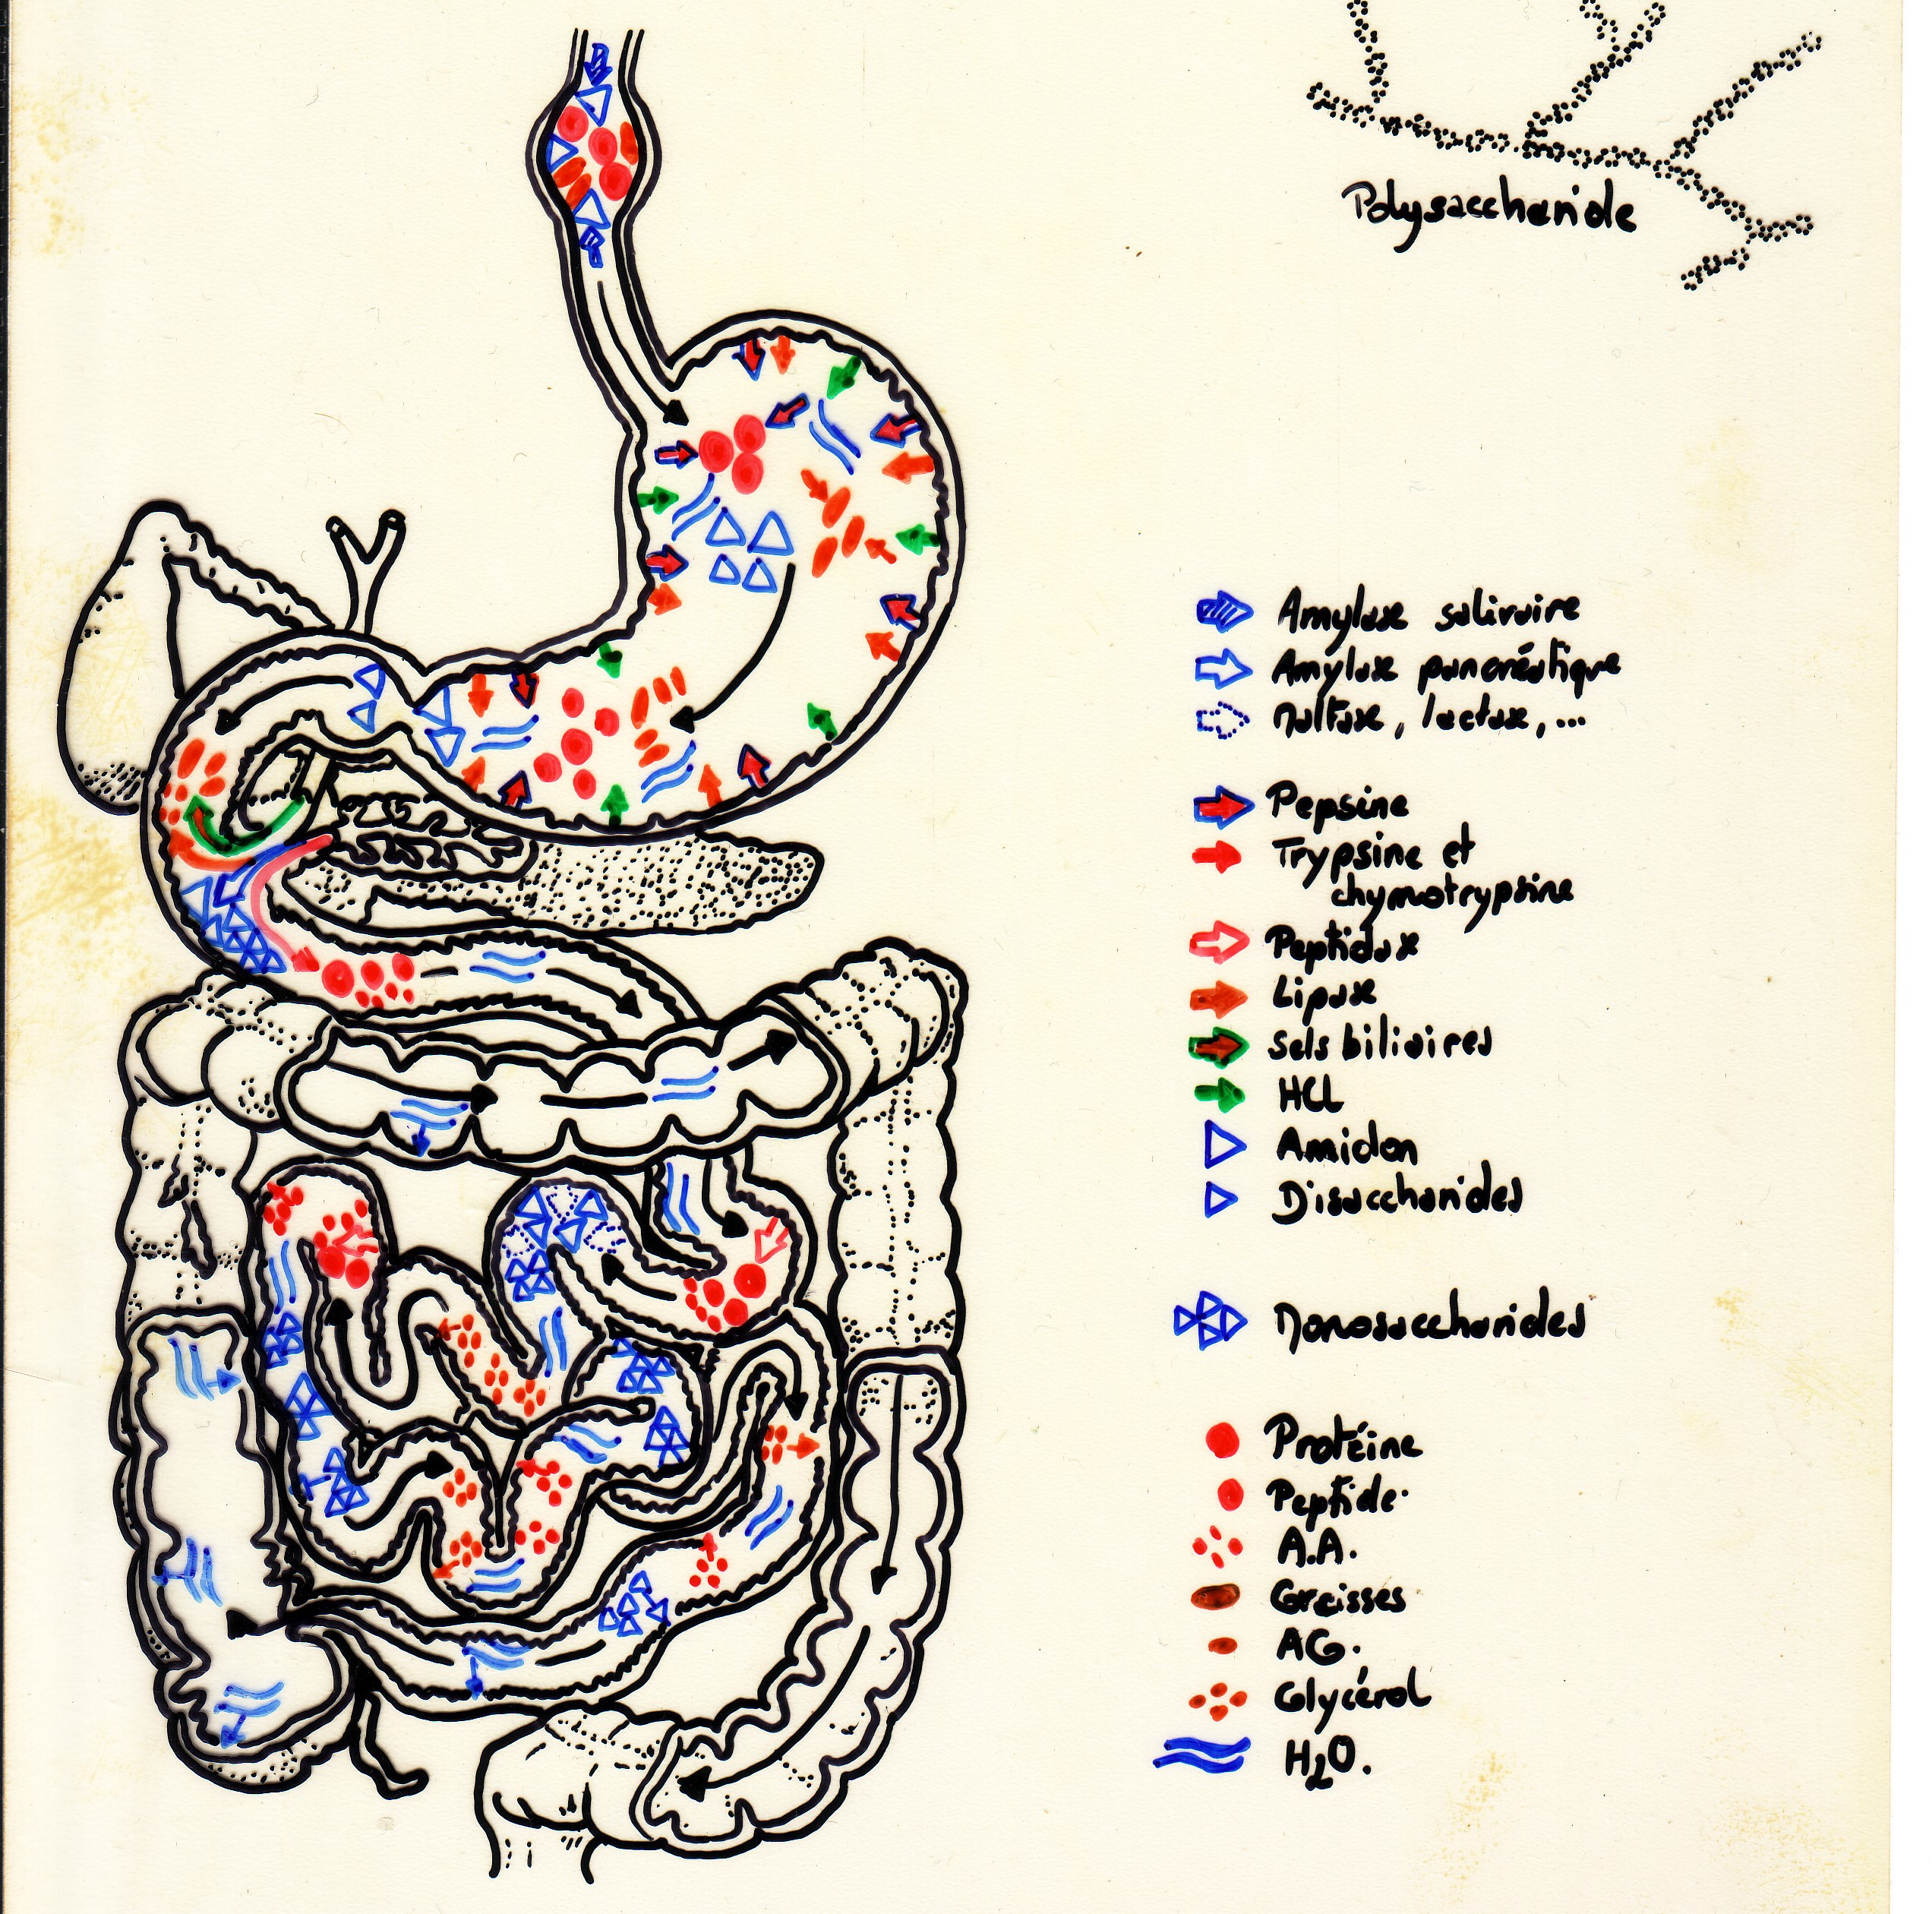 Polysaccharide
Amylase salivaire
Amylase pancréatique
Maltase, lactase, ...
Pepsine
Trypsine et
chymotrypsine
Peptidase
Lipase
Sels biliaires
HCl
Amidon
Disaccharides
Monosaccharides
Protéine
Peptide.
A.A.
Graisses
AG.
Glycérol
H2O.